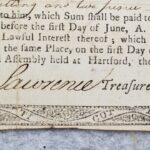 to him, which Sum shall be paid to
before the first Day of June, A.
Lawful Interest thereof; which
the same Place, on the first Day of
d Assembly held at Hartford, the
Lawrence Treasure